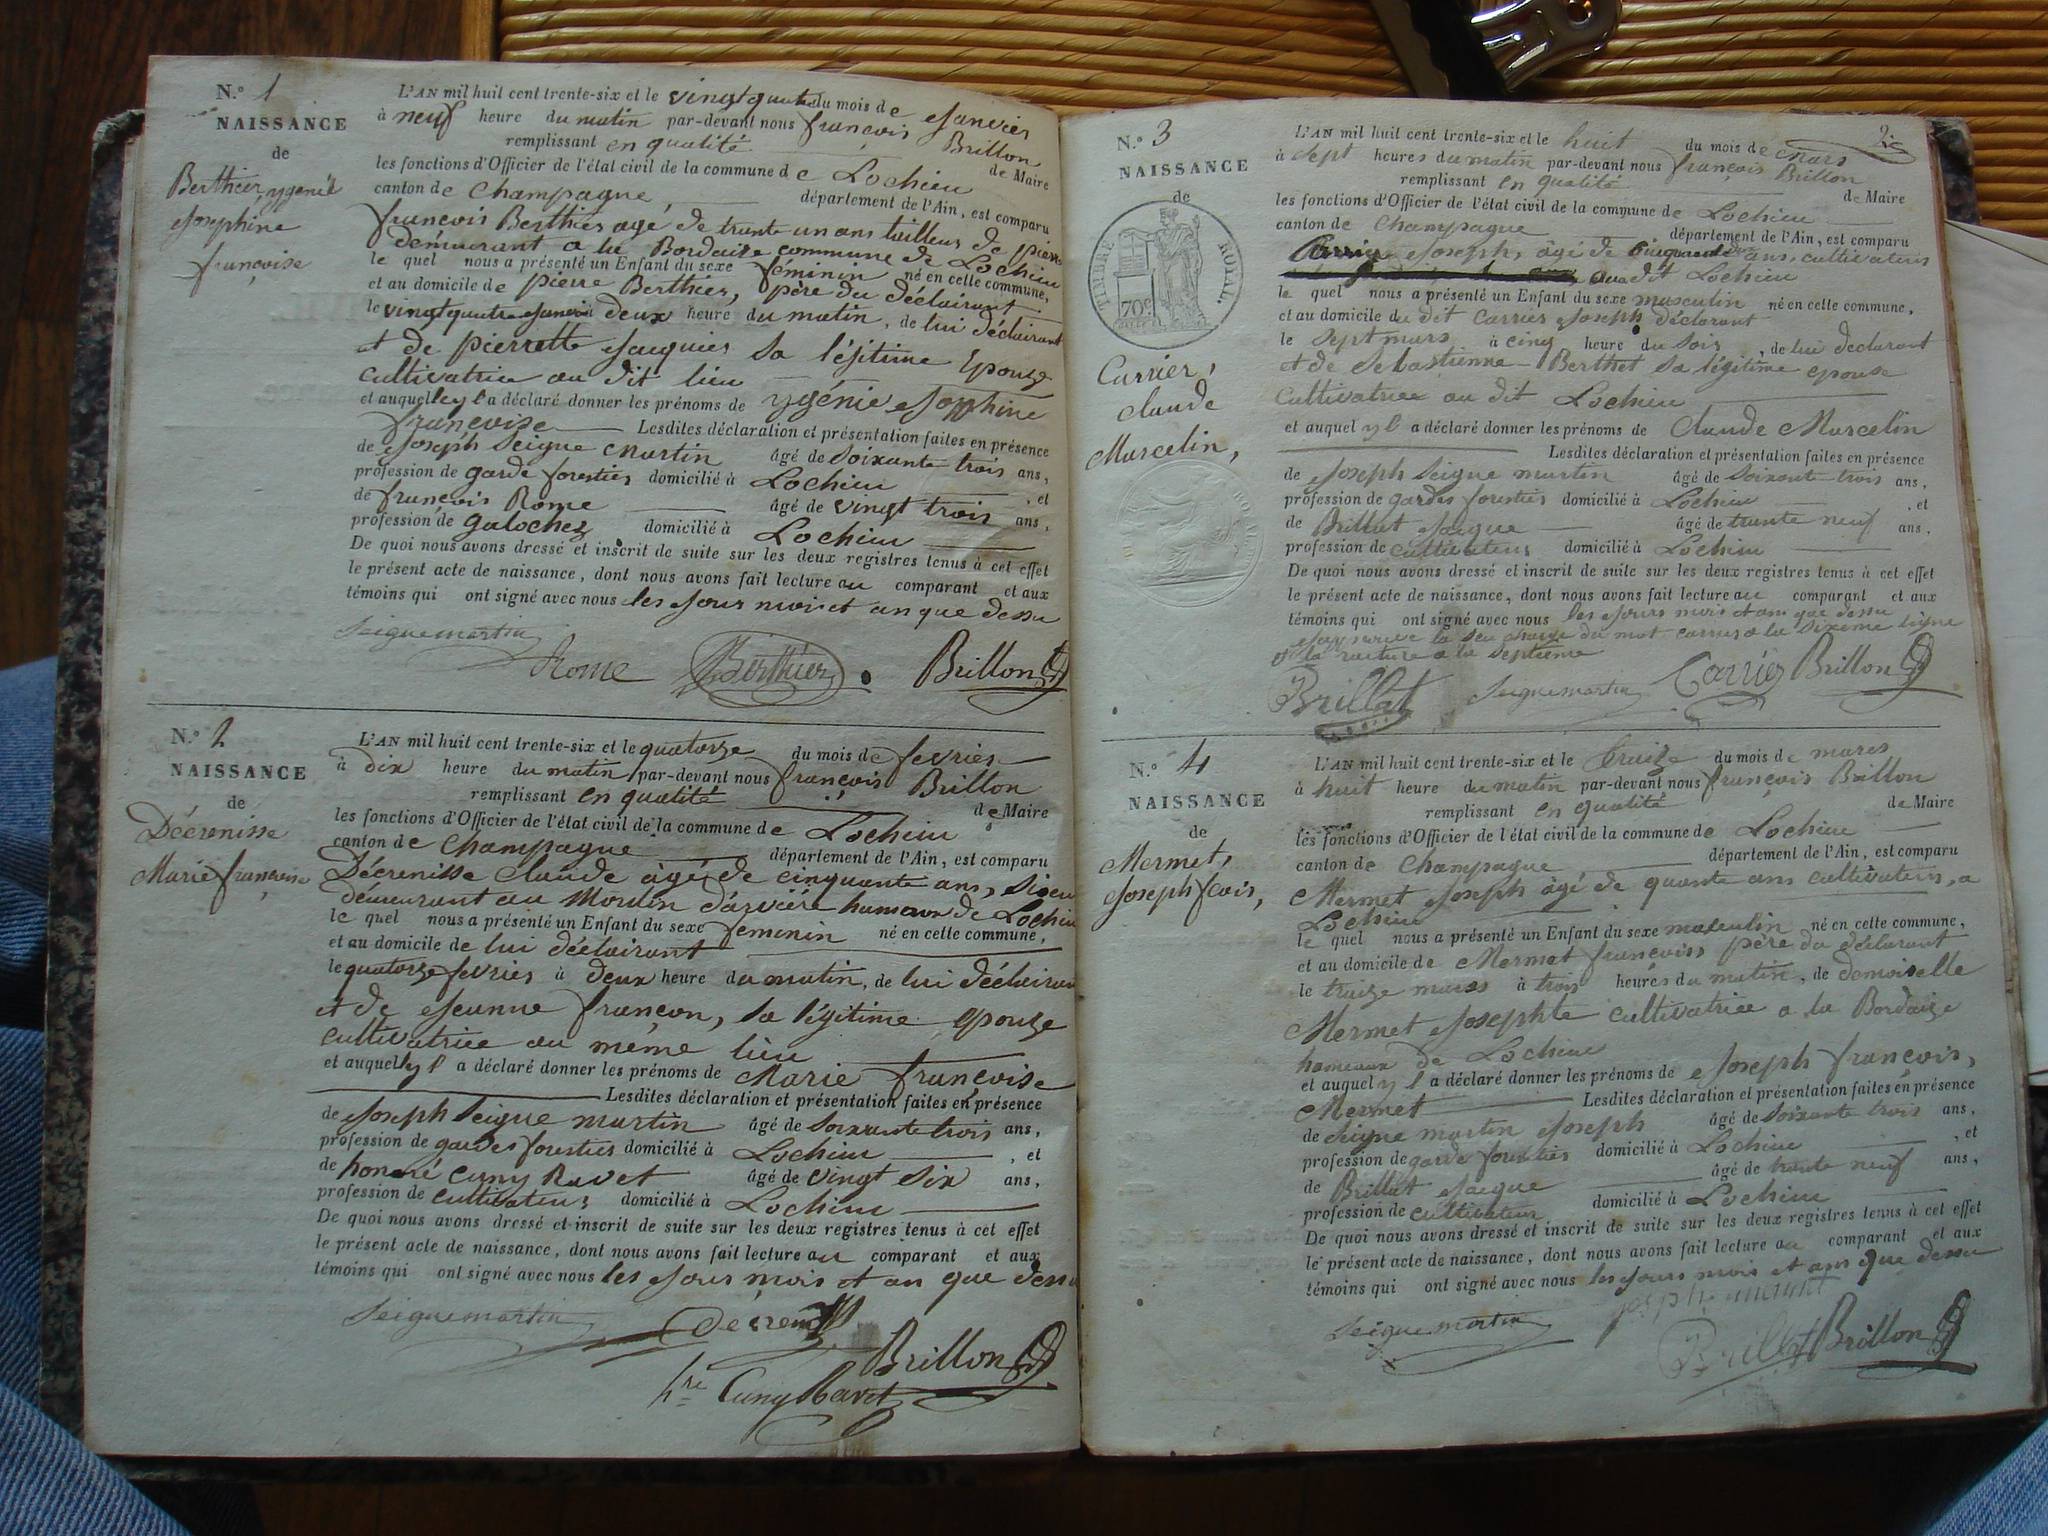 N.º 1
NAISSANCE
de
Berthier ygénie
Josephine
françoise
L'AN mil huit cent trente-six et le vingt quatre du mois de Janvier
à neuf heure du matin par-devant nous françois Brillon
remplissant en qualité de Maire
les fonctions d'Officier de l'état civil de la commune de Lochieu
canton de Champagne, département de l'Ain, est comparu
françois Berthier agé de trante un ans tailleur de pierre
demeurant a la Bordaize commune de Lochieu
le quel nous a présenté un Enfant du sexe féminin né en cette commune,
et au domicile de pierre Berthier, père du déclairant
le vingt quatre Janvier à deux heure du matin, de lui déclairant
et de pierrette Jacquier sa légitime Epouze
cultivatrice au dit lieu
et auquel yl a déclaré donner les prénoms de ygénie Josephine
françoise Lesdites déclaration et présentation faites en présence
de Joseph Seigne Martin âgé de soixante trois ans,
profession de garde forestier domicilié à Lochieu , et
de françois Rome âgé de vingt trois ans,
profession de galocher domicilié à Lochieu
De quoi nous avons dressé et inscrit de suite sur les deux registres tenus à cet effet
le présent acte de naissance, dont nous avons fait lecture au comparant et aux
témoins qui ont signé avec nous les jour mois et an que dessu
Seignemartin Rome Berthier Brillon
N.º 2
NAISSANCE
de
Décrenisse
Marie françoise
L'AN mil huit cent trente-six et le quatorze du mois de fevrier
à dix heure du matin par-devant nous françois Brillon
remplissant en qualité de Maire
les fonctions d'Officier de l'état civil de la commune de Lochieu
canton de Champagne département de l'Ain, est comparu
Décrenisse Claude âgé de cinquante ans,
démeurant au Moulin d'arvière hameaux de Lochieu
le quel nous a présenté un Enfant du sexe feminin né en cette commune,
et au domicile de lui déclairant
le quatorze fevrier à deux heure du matin, de lui déclairant
et de Jeanne françon, sa légitime Epouze
cultivatrice au même lieu
et auquel yl a déclaré donner les prénoms de Marie françoise
Lesdites déclaration et présentation faites en présence
de Joseph Seigne martin âgé de soixante trois ans,
profession de gardes forestier domicilié à Lochieu , et
de honoré Cuny Ravet âgé de vingt six ans,
profession de cultivateur domicilié à Lochieu
De quoi nous avons dressé et inscrit de suite sur les deux registres tenus à cet effet
le présent acte de naissance, dont nous avons fait lecture au comparant et aux
témoins qui ont signé avec nous les jour mois et an que dessu
Seignemartin Brillon
hré Cuny Ravet
N.º 3
NAISSANCE
de
TIMBRE ROYAL.
70c
Carrier,
claude
Marcelin,
L'AN mil huit cent trente-six et le huit du mois de Mars
à sept heures du matin par-devant nous françois Brillon
remplissant en qualité de Maire
les fonctions d'Officier de l'état civil de la commune de Lochieu
canton de Champagne département de l'Ain, est comparu
Carrier Joseph, âgé de ans, cultivateur
au dit Lochieu
le quel nous a présenté un Enfant du sexe masculin né en cette commune,
et au domicile du dit Carrier Joseph déclarant
le sept mars à cinq heure du soir, de lui declarant
et de Sebastienne Berthet sa légitime epouse
Cultivatrice au dit Lochieu
et auquel yl a déclaré donner les prénoms de Claude Marcelin
Lesdites déclaration et présentation faites en présence
de Joseph Seigne martin âgé de soixante trois ans,
profession de gardes forestier domicilié à Lochieu , et
de Brillat Jacque âgé de trante neuf ans,
profession de cultivateur domicilié à Lochieu
De quoi nous avons dressé et inscrit de suite sur les deux registres tenus à cet effet
le présent acte de naissance, dont nous avons fait lecture au comparant et aux
témoins qui ont signé avec nous les jours mois et an que dessu
la du mot carrier a la sixeme ligne
et la rarture a la septieme
Brillat Seignemartin Carrier Brillon
N.º 4
NAISSANCE
de
Mermet,
Joseph fcois,
L'AN mil huit cent trente-six et le traize du mois de mares
à huit heure du matin par-devant nous françois Brillon
remplissant en qualité de Maire
les fonctions d'Officier de l'état civil de la commune de Lochieu
canton de Champagne département de l'Ain, est comparu
Mermet Joseph âgé de quante ans cultivateur, a
Lochieu
le quel nous a présenté un Enfant du sexe masculin né en cette commune,
et au domicile de Mermet françois père du déclarant
le traize mares à trois heures du matin, de demoiselle
Mermet Josephte cultivatrice a la Bordaize
hameaux de Lochieu
et auquel yl a déclaré donner les prénoms de Joseph françois,
Mermet Lesdites déclaration et présentation faites en présence
de Seigne martin Joseph âgé de soixante trois ans,
profession de garde forestier domicilié à Lochieu , et
de Brillat Jacque âgé de trante neuf ans,
profession de cultivateur domicilié à Lochieu
De quoi nous avons dressé et inscrit de suite sur les deux registres tenus à cet effet
le présent acte de naissance, dont nous avons fait lecture au comparant et aux
témoins qui ont signé avec nous les jours mois et ans que dessu
Seignemartin Brillat Brillon